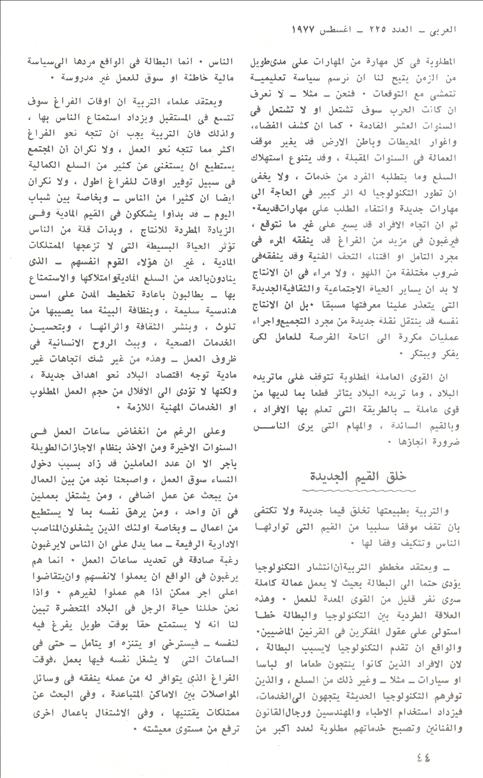 العربى ـ العدد ٢٢٥ ـ اغسطس ١٩٧٧
المطلوبة فى كل مهارة من المهارات على مدى طويل
من الزمن يتيح لنا ان نرسم سياسة تعليمية
تتمشى مع التوقعات • فنحن ـ مثلا ـ لا نعرف
ان كانت الحرب سوف تشتعل او لا تشتعل فى
السنوات العشر القادمة • كما ان كشف الفضاء،
واغوار المحيطات وباطن الارض قد يغير موقف
العمالة فى السنوات المقبلة ، وقد يتنوع استهلاك
السلع وما يتطلبه الفرد من خدمات ، ولا يخفى
ان تطور التكنولوجيا له اثر كبير فى الحاجة الى
مهارات جديدة وانتفاء الطلب على مهارات قديمة•
ثم ان اتجاه الافراد قد يسير على غير ما نتوقع ،
فيرغبون فى مزيد من الفراغ قد ينفقه المرء فى
مجرد التأمل او اقتناء التحف الفنية وقد ينفقه فى
ضروب مختلفة من اللهو ، ولا مراء فى ان الانتاج
لا بد ان يساير الحياة الاجتماعية والثقافية الجديدة
التى يتعذر علينا معرفتها مسبقا • بل ان الانتاج
نفسه قد ينتقل نقلة جديدة من مجرد التجميع واجراء
عمليات مكررة الى اتاحة الفرصة للعامل لكى
يفكر ويبتكر •
ان القوى العاملة المطلوبة تتوقف على ما تريده
البلاد ، وما تريده البلاد يتأثر قطعا بما لديها من
قوى عاملة ـ بالطريقة التى تعلم بها الافراد ،
وبالقيم السائدة ، والمهام التى يرى الناس
ضرورة انجازها •
خلق القيم الجديدة
والتربية بطبيعتها تخلق قيما جديدة ولا تكتفى
بان تقف موقفا سلبيا من القيم التى توارثها
الناس وتتكيف وفقا لها •
ـ ويعتقد مخططو التربية ان انتشار التكنولوجيا
يؤدى حتما الى البطالة بحيث لا يعمل عمالة كاملة
سوى نفر قليل من القوى المعدة للعمل • وهذه
العلاقة الطردية بين التكنولوجيا والبطالة خطأ
استولى على عقول المفكرين فى القرنين الماضيين•
والواقع ان تقدم التكنولوجيا لايسبب البطالة ،
لان الافراد الذين كانوا ينتجون طعاما او لباسا
او سيارات ـ مثلا ـ وغير ذلك من السلع ، والذين
توفرهم التكنولوجيا الحديثة يتجهون الى الخدمات،
فيزداد استخدام الاطباء والمهندسين ورجال القانون
والفنانين وتصبح خدماتهم مطلوبة لعدد اكبر من
الناس • انما البطالة فى الواقع مردها الى سياسة
مالية خاطئة او سوق للعمل غير مدروسة •
ويعتقد علماء التربية ان اوقات الفراغ سوف
تتسع فى المستقبل ويزداد استمتاع الناس بها ،
ولذلك فان التربية يجب أن تتجه نحو الفراغ
اكثر مما تتجه نحو العمل ، ولا نكران أن المجتمع
يستطيع ان يستغنى عن كثير من السلع الكمالية
فى سبيل توفير اوقات للفراغ اطول ، ولا نكران
ايضا ان كثيرا من الناس ـ وبخاصة بين شباب
اليوم ـ قد بدأوا يشككون فى القيم المادية وفى
الزيادة المطردة للانتاج ، وبدأت قلة من الناس
تؤثر الحياة البسيطة التى لا تزعجها الممتلكات
المادية ، غير ان هؤلاء القوم انفسهم ـ الذى
ينادون بالحد من السلع المادية وامتلاكها والاستمتاع
بها ـ يطالبون باعادة تخطيط المدن على اسس
هندسية سليمة ، وبنظافة البيئة مما يصيبها من
تلوث ، وبنشر الثقافة واثرائها ، وبتحسين
الخدمات الصحية ، وببث الروح الانسانية فى
ظروف العمل ـ وهذه من غير شك اتجاهات غير
مادية توجه اقتصاد البلاد نحو اهداف جديدة ،
ولكنها لا تؤدى الى الاقلال من حجم العمل المطلوب
او الخدمات المهنية اللازمة •
وعلى الرغم من انخفاض ساعات العمل فى
السنوات الاخيرة ومن الاخذ بنظام الاجازات الطويلة
بأجر الا ان عدد العاملين قد زاد بسبب دخول
النساء سوق العمل ، واصبحنا نجد من بين العمال
من يبحث عن عمل اضافى ، ومن يشتغل بعملين
فى آن واحد ، ومن يرهق نفسه بما لا يستطيع
من اعمال ـ وبخاصة اولئك الذين يشغلون المناصب
الادارية الرفيعة ـ مما يدل على ان الناس لا يرغبون
رغبة صادقة فى تحديد ساعات العمل • انما هم
يرغبون فى الواقع ان يعملوا لانفسهم وان يتقاضوا
اعلى اجر ممكن اذا هم عملوا لغيرهم • واذا
نحن حللنا حياة الرجل فى البلاد المتحضرة تبين
لنا انه لا يستمتع حقا بوقت طويل يفرغ فيه
لنفسه ـ فيسترخى او يتنزه او يتأمل ـ حتى فى
الساعات التى لا يشغل نفسه فيها بعمل ، فوقت
الفراغ الذى يتوافر له من عمله ينفقه فى وسائل
المواصلات بين الاماكن المتباعدة ، وفى البحث عن
ممتلكات يقتنيها ، وفى الاشتغال باعمال اخرى
ترفع من مستوى معيشته •
٤٤